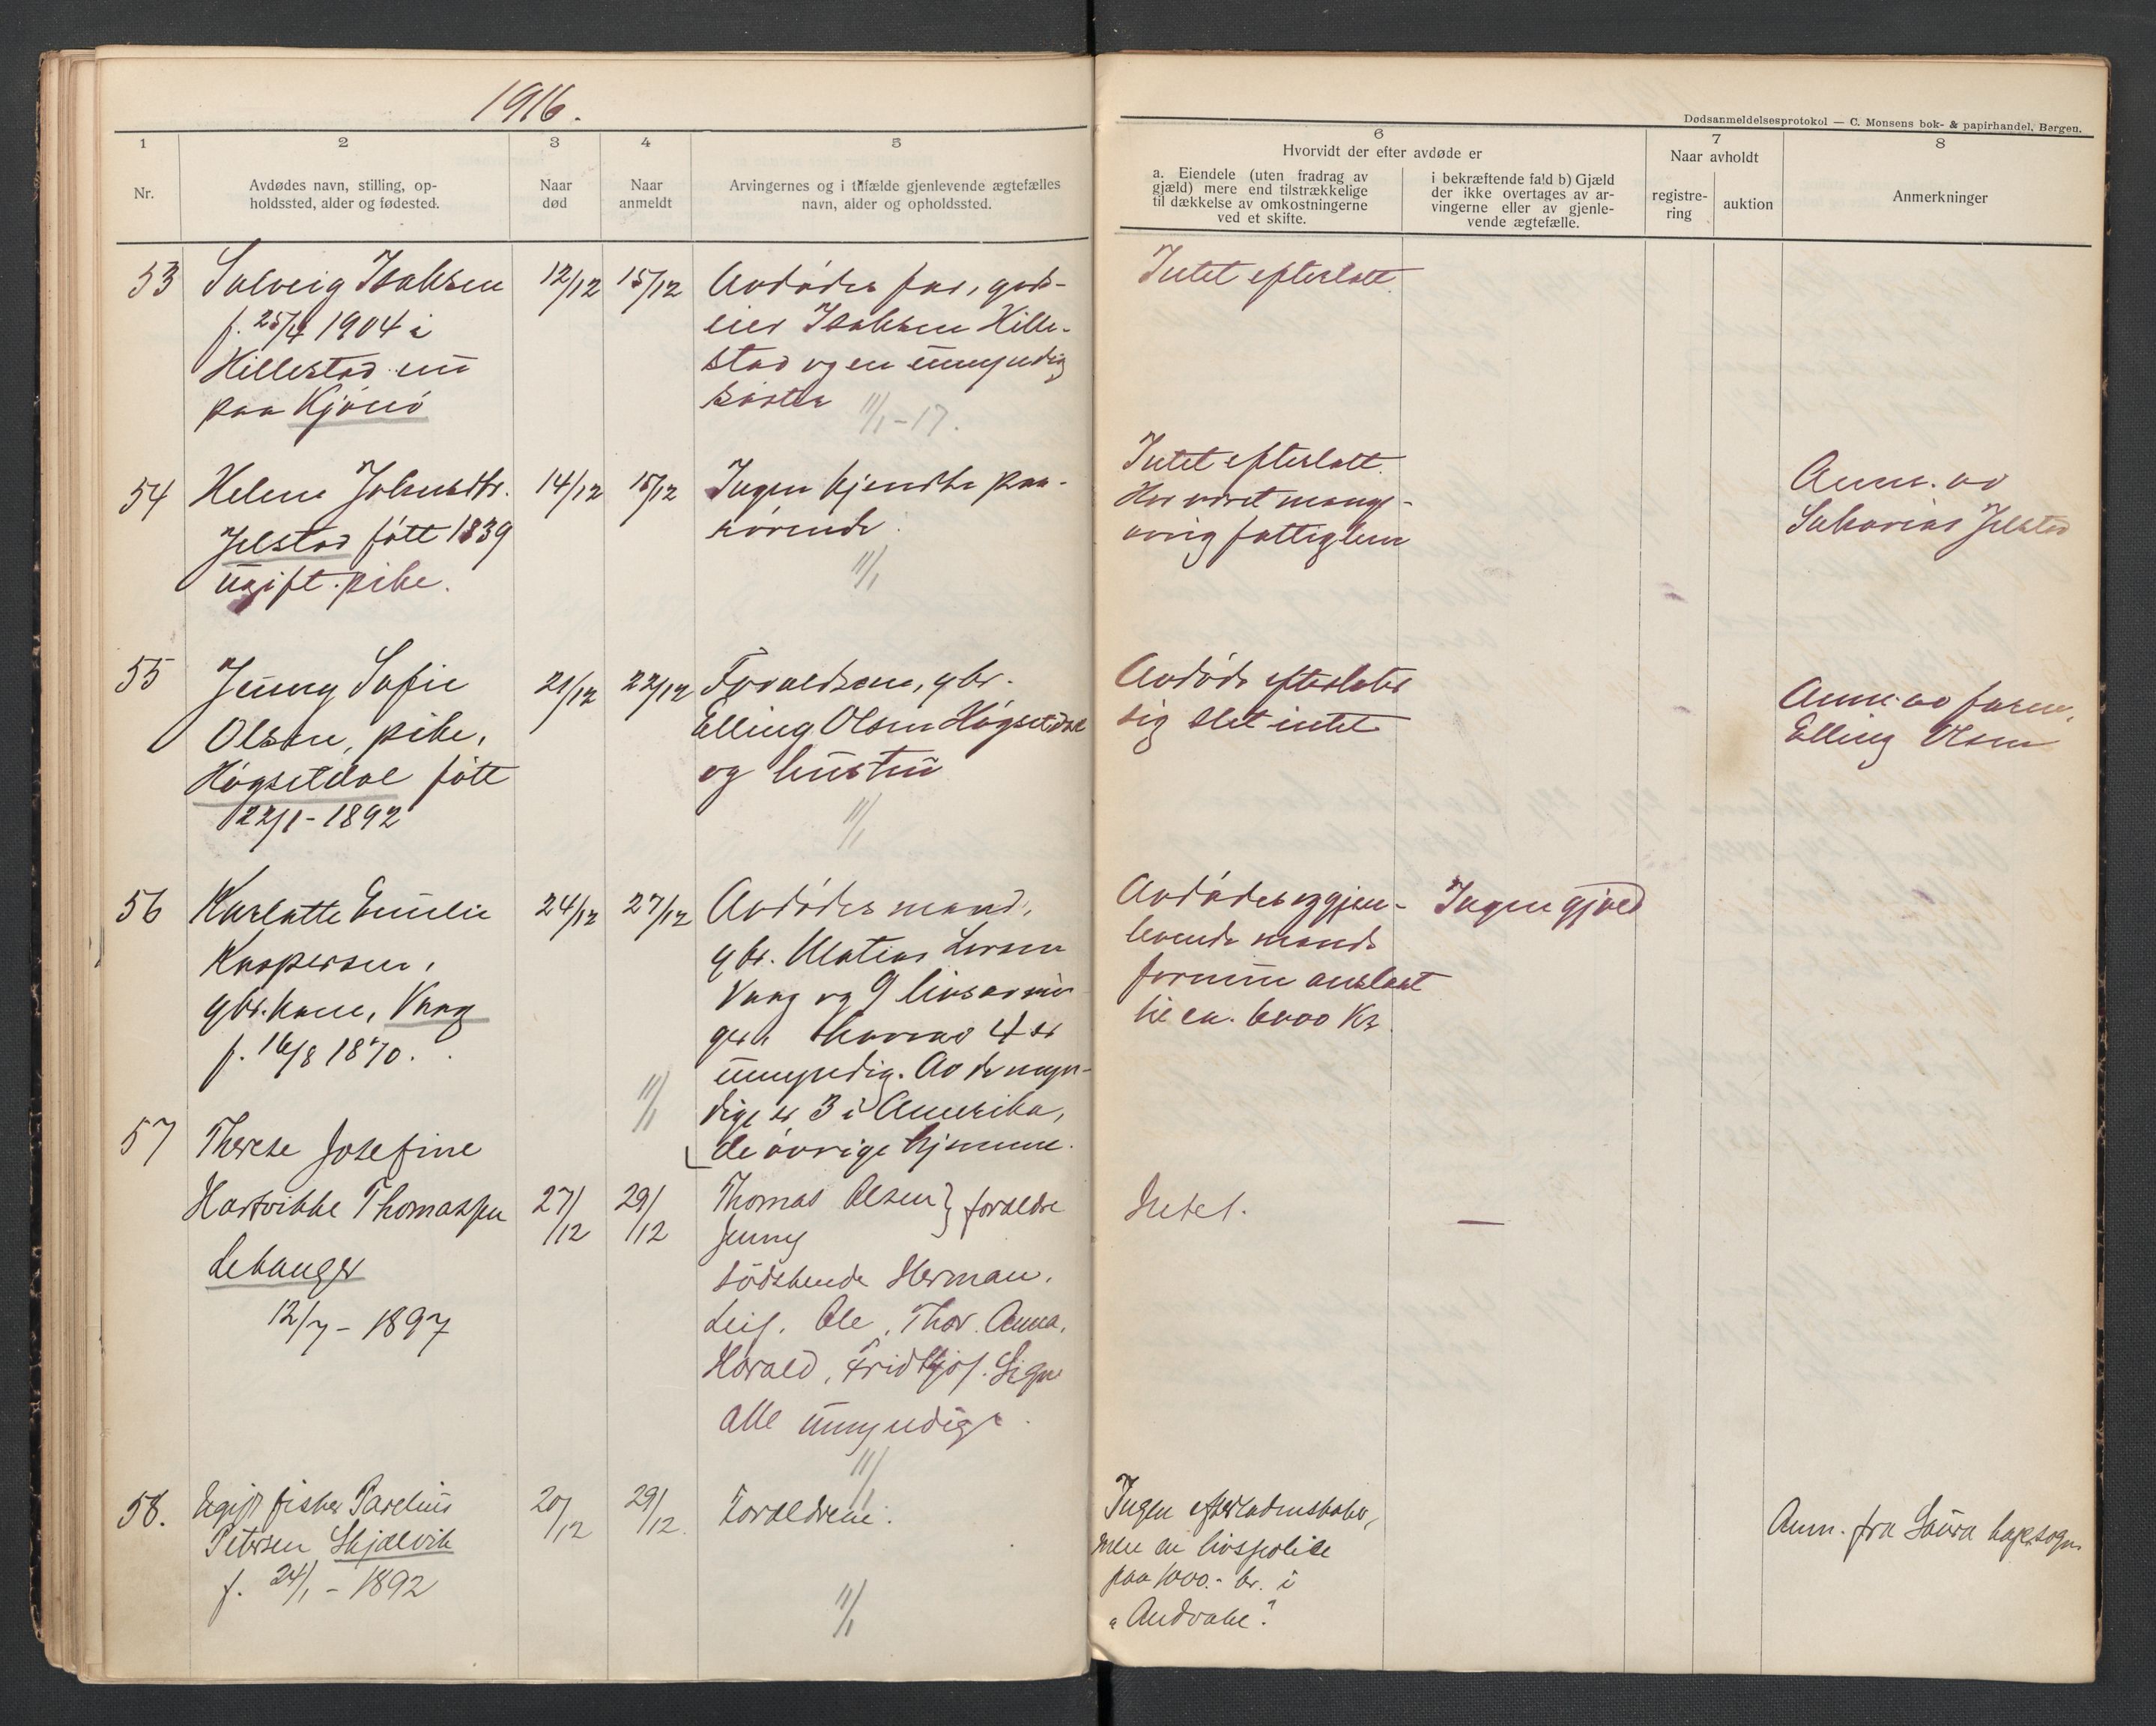 1916.
Dødsanmeldelsesprotokol — C. Monsens bok- & papirhandel, Bergen.
1
2
3
4
5
6
7
8
Nr.
Avdødes navn, stilling, op-
holdssted, alder og fødested.
Naar
død
Naar
anmeldt
Arvingernes og i tilfælde gjenlevende ægtefælles
navn, alder og opholdssted.
Hvorvidt der efter avdøde er
a. Eiendele (uten fradrag av
gjæld) mere end tilstrækkelige
til dækkelse av omkostningerne
ved et skifte.
i bekræftende fald b) Gjæld
der ikke overtages av ar-
vingerne eller av gjenle-
vende ægtefælle.
Naar avholdt
registre-
ring
auktion
Anmerkninger
53
Solveig Isaksen
f. 25/4 1904 i
Hillestad nu
paa Kjönö
12/12
15/12
Avdödes far, gods-
eier Isaksen Hille-
stad og en umyndig
söster
11/1-17.
Intet efterlatt.
54
Helene Johnsdtr.
Jelstad född 1839
ugift pike.
14/12
15/12
Ingen kjendte paa-
rörende.
11/1
Intet efterlatt.
Har været mange-
aarig fattiglem
Anm. av
Sakarias Jelstad
55
Jenny Sofie
Olsen, pike,
Högsetdal fött
22/1-1892
21/12
22/12
Forældrene, gbr.
Elling Olsen Högsetdal
og hustru
11/1
Avdöde efterlater
sig slet intet
Anm. av faren,
Elling Olsen
56
Karlotte Emelie
Kaspersen,
gbr.kone, Vaag
f. 16/8 1870.
24/12
27/12
Avdödes mand,
gbr. Matias Larsen
Vaag og 9 livsarvin-
ger hvorav 4 er
umyndig. Av de myn-
dige er 3 i Amerika,
de övrige hjemme.
11/1
Avdödes og gjen-
levende mands
formue anslaat
til ca. 6000 Kr.
Ingen gjæld
57
Therese Josefine
Hartvikke Thomassen
Lekanger
12/7-1897
27/12
29/12
Thomas Olsen } forældre
Jenny
södskende Herman,
Leif, Ole, Thor, Anna,
Harald, Fridtjof, Signe
alle umyndige.
11/1
Intet.
—
58.
Ugift fisker Parelius
Petersen Skjælvik
f. 24/1-1892
20/12
29/12.
Forældrene.
11/1
Ingen efterladenskaber,
men en livspolice
paa 1000.- kr. i
"Andvake".
Anm. fra Saura